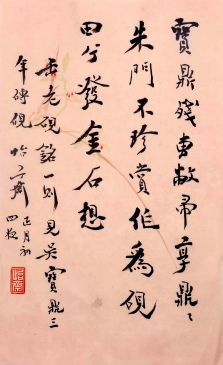 寶鼎殘專敝帚享鼎〻
朱門不珍賞作爲硯
田兮發金石想
缶老硯銘一則見吳寶鼎三
年磚硯
正月初
四夜